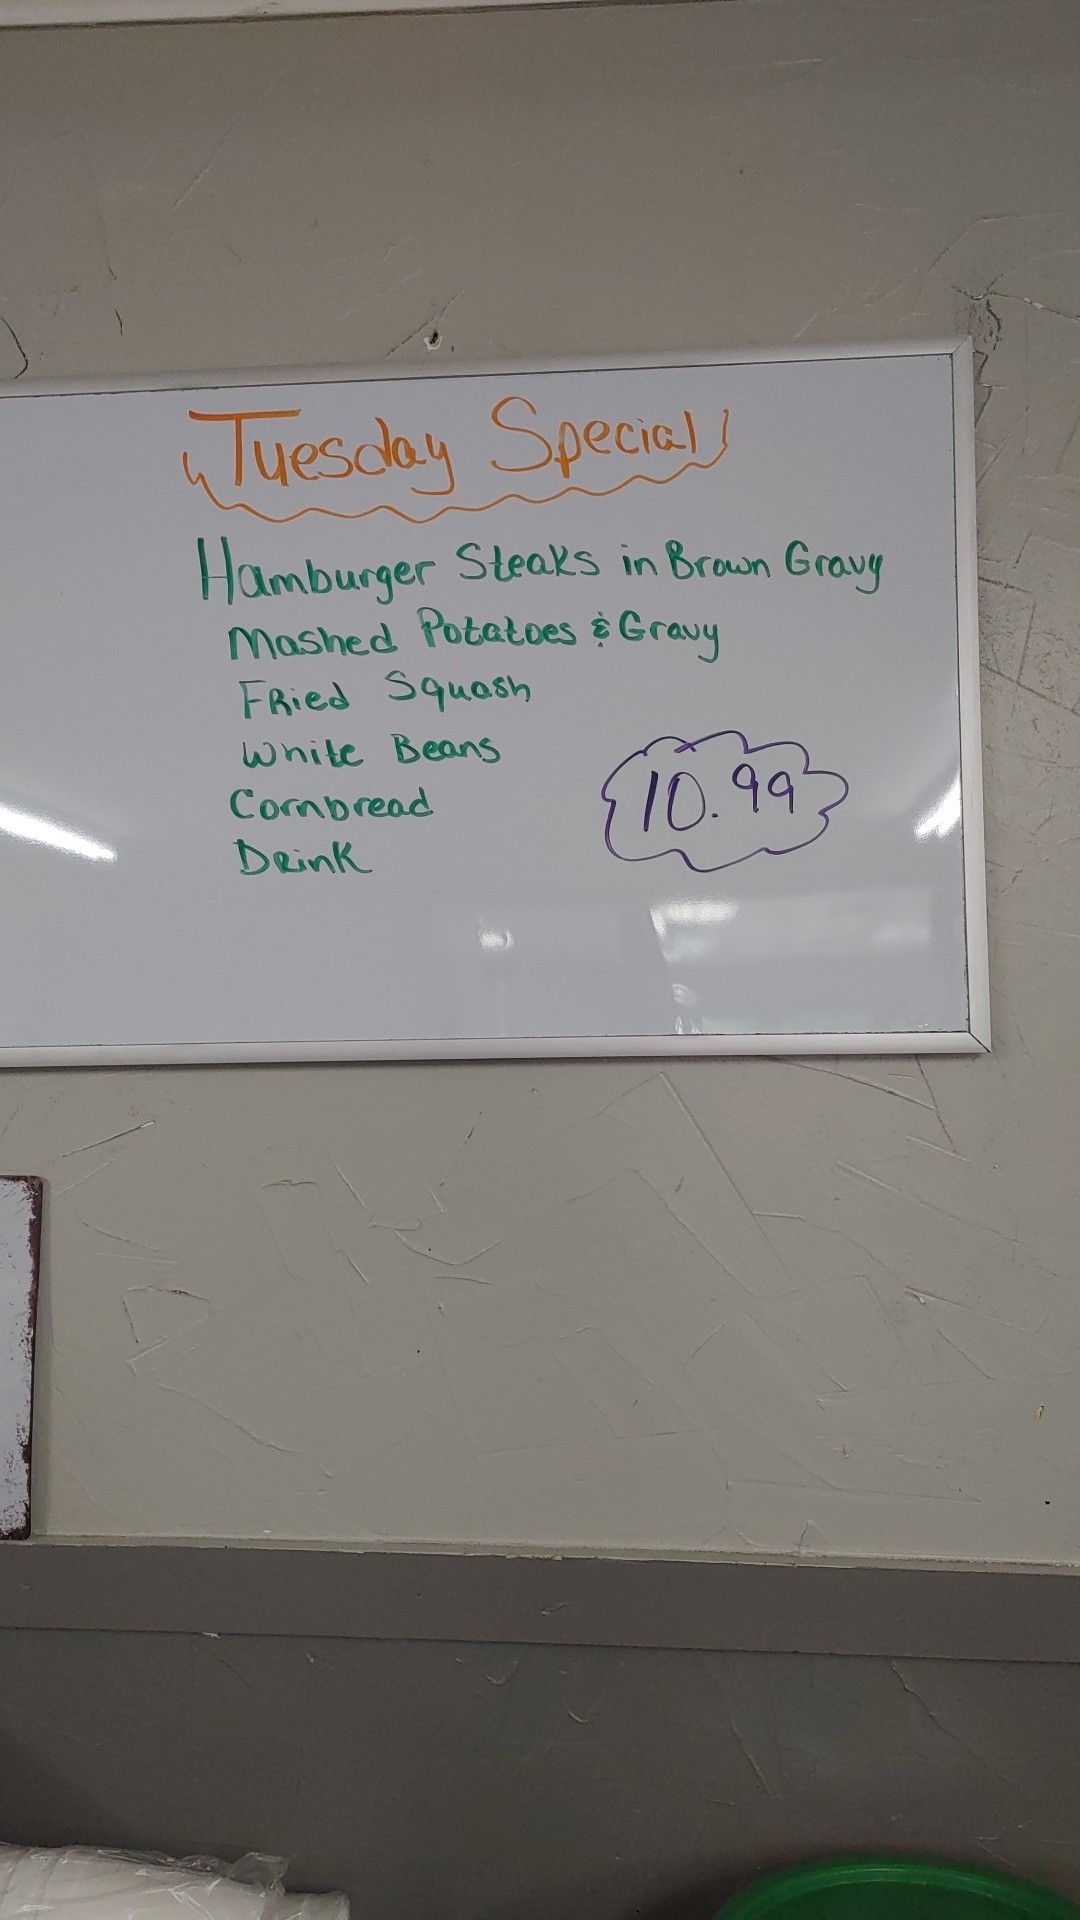 Tuesday Special
Hamburger Steaks in Brown Gravy
Mashed Potatoes & Gravy
Fried Squash
White Beans
Cornbread
Drink
10.99